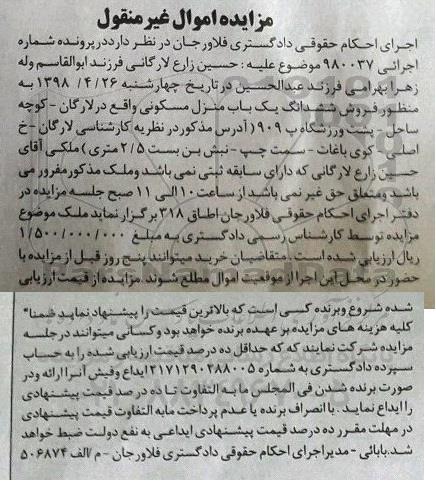 مزایده اموال غیر منقول
اجرای احکام حقوقی دادگستری فلاورجان در نظر دارد در پرونده شماره
اجرائی ۹۸۰۰۳۷ موضوع علیه : حسین زارع لارگانی فرزند ابوالقاسم وله
زهرا بهرامی فرزند عبدالحسین در تاریخ چهارشنبه ۱۳۹۸/۴/۲۶ به
منظور فروش ششدانگ یک باب منزل مسکونی واقع در لارگان - کوچه
ساحل - پشت ورزشگاه پ ۹۰۹ ( آدرس مذکور در نظریه کارشناسی لارگان - خ
اصلی - کوی باغات - سمت چپ - نبش بن بست ۲/۵ متری ) ملکی آقای
حسین زارع لارگانی که دارای سابقه ثبتی نمی باشد وملک مذکور مفروز می
باشد ومتعلق حق غیر نمی باشد از ساعت ۱۰ الی ۱۱ صبح جلسه مزایده در
دفتر اجرای احکام حقوقی فلاورجان اطاق ۳۱۸ برگزار نماید ملک موضوع
مزایده توسط کارشناس رسمی دادگستری به مبلغ ۱/۵۰۰/۰۰۰/۰۰۰
ریال ارزیابی شده است . متقاضیان خرید میتوانند پنج روز قبل از مزایده با
حضور در محل این اجرا از موقعیت اموال مطلع شوند . مزایده از قیمت ارزیابی
شده شروع وبرنده کسی است که بالاترین قیمت را پیشنهاد نماید ضمنا"
کلیه هزینه های مزایده بر عهده برنده خواهد بود وکسانی میتوانند در جلسه
مزایده شرکت نمایند که که حداقل ده درصد قیمت ارزیابی شده را به حساب
سپرده دادگستری به شماره ۲۱۷۱۲۹۰۲۸۸۰۰۵ ایداع وفیش آنرا ارائه ودر
صورت برنده شدن فی المجلس ما به التفاوت تا ده درصد قیمت پیشنهادی
را ایداع نماید . با انصراف برنده یا عدم پرداخت مابه التفاوت قیمت پیشنهادی
در مهلت مقرر ده درصد قیمت پیشنهادی ایداعی به نفع دولت ضبط خواهد
شد. بابائی - مدیر اجرای احکام حقوقی دادگستری فلاورجان - م/الف ۵۰۶۸۷۴